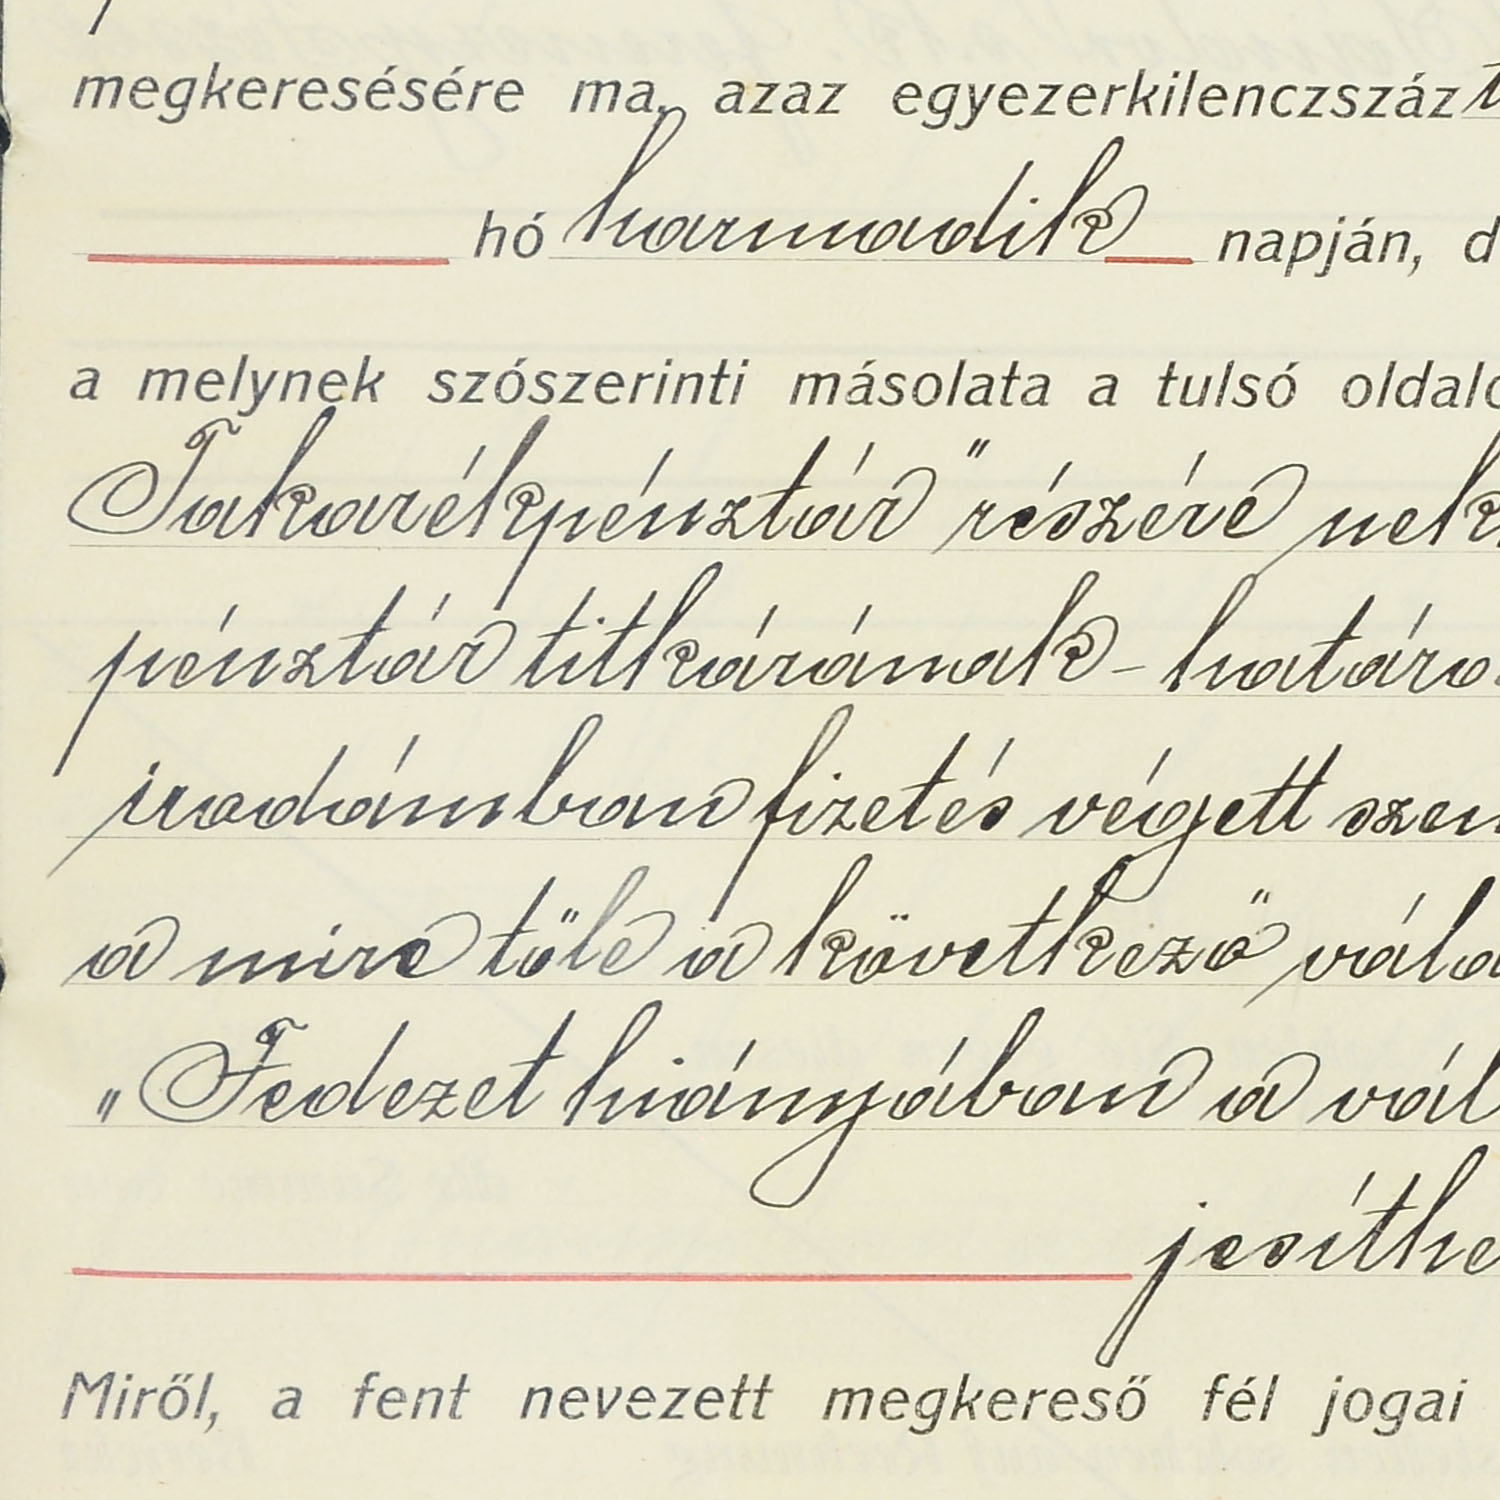 megkeresésére ma, azaz egyezerkilenczszáz
hó harmadik napján, d
a melynek szószerinti másolata a tulsó oldalo
Takarékpénztár" részére nek
pénztár titkárának – határo
irodámban fizetés végett szem
a mire tőle a következő vála
„Fedezet hiányában a vál
jesíthe
Miről, a fent nevezett megkereső fél jogai